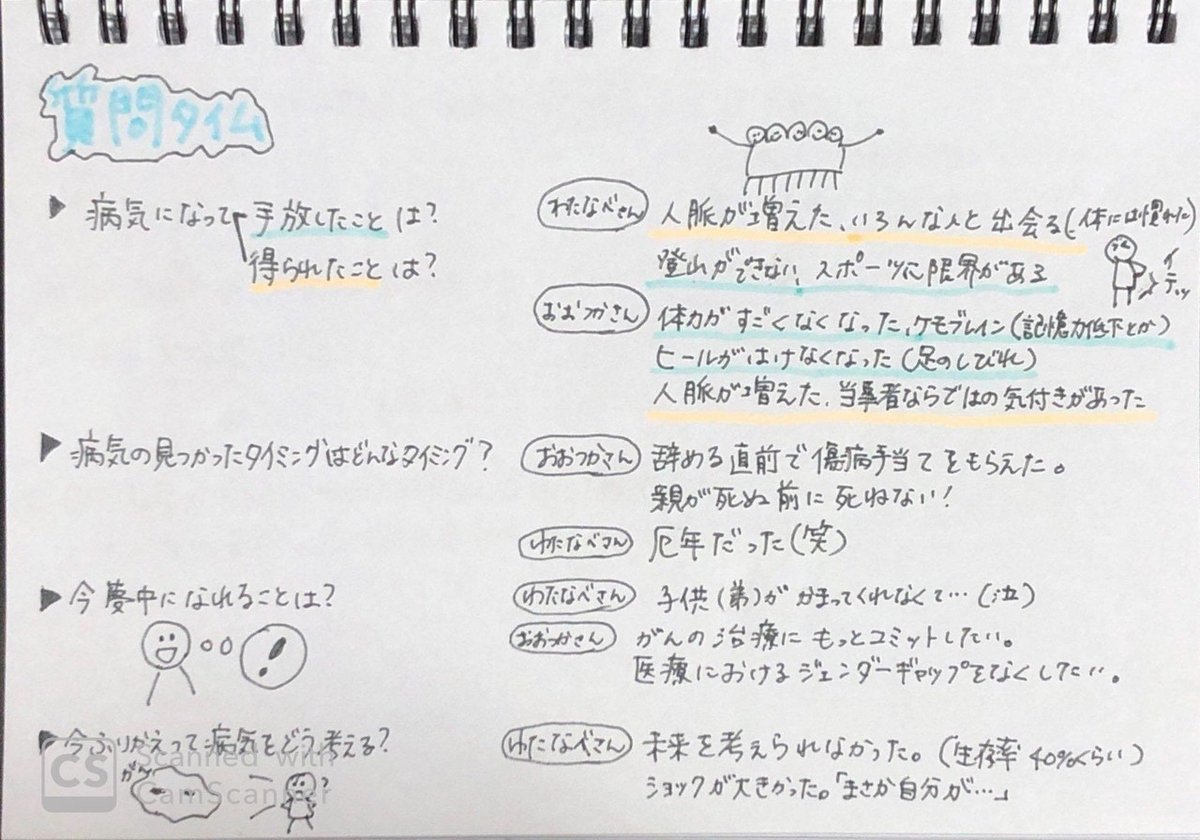 質問タイム
▶ 病気になって手放したことは?
得られたことは?
わたなべさん 人脈が増えた、いろんな人と出会る(体には慣れた)
登山ができない、スポーツに限界がある
イテッ
おおつかさん 体力がすごくなくなった、ケモブレイン(記憶力低下とか)
ヒールがはけなくなった(足のしびれ)
人脈が増えた、当事者ならではの気付きがあった
▶ 病気の見つかったタイミングはどんなタイミング?
おおつかさん 辞める直前で傷病手当てをもらえた。
親が死ぬ前に死ねない!
わたなべさん 厄年だった(笑)
▶ 今夢中になれることは?
!
わたなべさん 子供(弟)がかまってくれなくて…(泣)
おおつかさん がんの治療にもっとコミットしたい。
医療におけるジェンダーギャップをなくしたい。
▶ 今ふりかえって病気をどう考える?
がん
?
わたなべさん 未来を考えられなかった。(生存率40%くらい)
ショックが大きかった。「まさか自分が…」
CS Scanned with
CamScanner